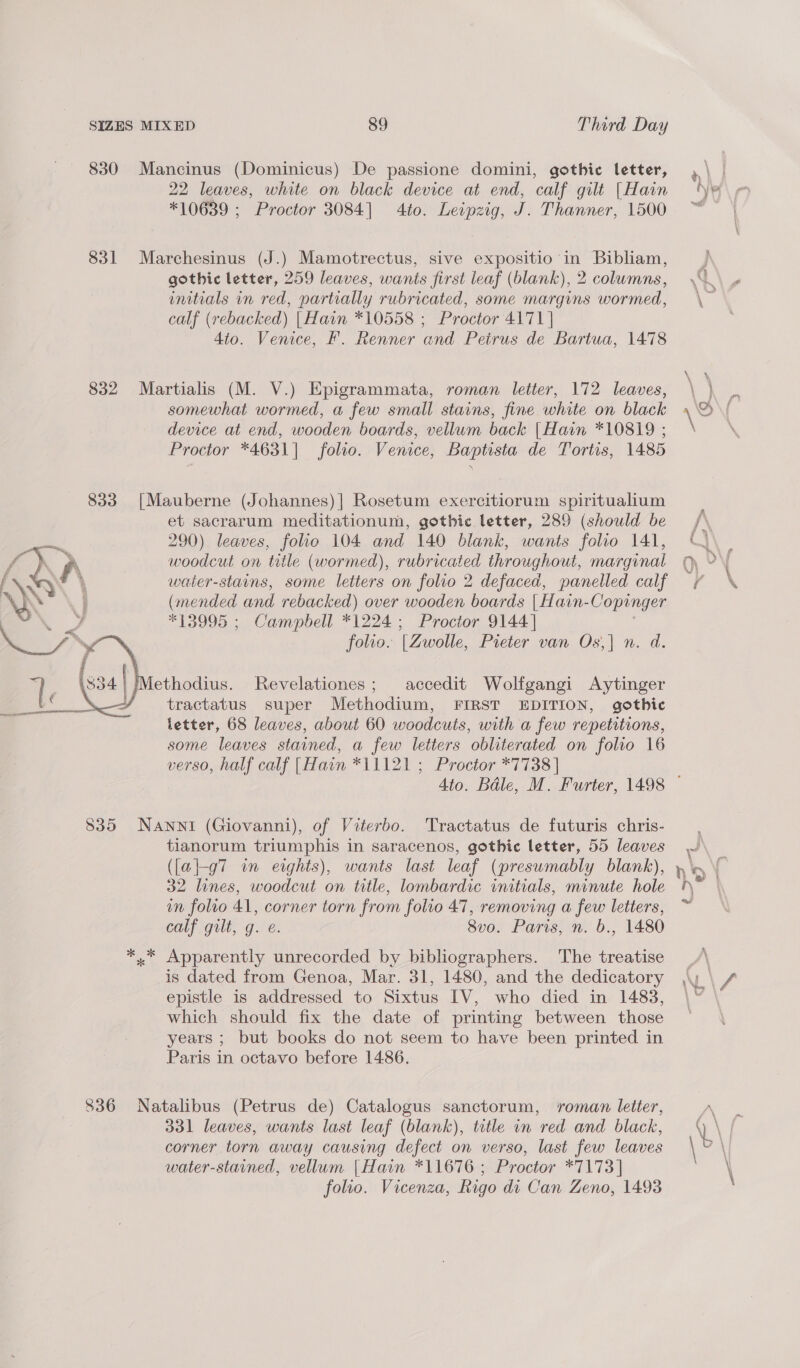 SIZES MIXED 89 Third Day
830 Mancinus (Dominicus) De passione domini, gothic letter,
22 leaves, white on black device at end, calf gilt [Hain
*10639 ; Proctor 3084] 4to. Leipzig, J. Thanner, 1500
831 Marchesinus (J.) Mamotrectus, sive expositio in Bibliam,
gothic letter, 259 leaves, wants first leaf (blank), 2 columns,
initials in red, partially rubricated, some margins wormed,
calf (rebacked) [Hain *10558 ; Proctor 4171]
4to. Venice, F. Renner and Petrus de Bartua, 1478
832 Martialis (M. V.) Epigrammata, roman letter, 172 leaves,
somewhat wormed, a few small stains, fine white on black
device at end, wooden boards, vellum back [Hain *10819 ;
Proctor *4631] folio. Venice, Baptista de Tortis, 1485
833 [Mauberne (Johannes)] Rosetum exercitiorum spiritualium
et sacrarum meditationum, gothic letter, 289 (should be
290) leaves, folio 104 and 140 blank, wants folio 141,
woodcut on title (wormed), rubricated throughout, marginal
water-stains, some letters on folio 2 defaced, panelled calf
(mended and rebacked) over wooden boards [Hain-Copinger
*13995 ; Campbell *1224 ; Proctor 9144]
folio. [Zwolle, Pieter van Os,] n. d.
834 Methodius. Revelationes ; accedit Wolfgangi Aytinger
tractatus super Methodium, FIRST EDITION, gothic
letter, 68 leaves, about 60 woodcuts, with a few repetitions,
some leaves stained, a few letters obliterated on folio 16
verso, half calf [Hain *11121 ; Proctor *7738]
4to. Bâle, M. Furter, 1498
835 NANNI (Giovanni), of Viterbo. Tractatus de futuris chris-
tianorum triumphis in saracenos, gothic letter, 55 leaves
([a]-g7 in eights), wants last leaf (presumably blank),
32 lines, woodcut on title, lombardic initials, minute hole
in folio 41, corner torn from folio 47, removing a few letters,
calf gilt, g. e. 8vo. Paris, n. b., 1480
*** Apparently unrecorded by bibliographers. The treatise
is dated from Genoa, Mar. 31, 1480, and the dedicatory
epistle is addressed to Sixtus IV, who died in 1483,
which should fix the date of printing between those
years ; but books do not seem to have been printed in
Paris in octavo before 1486.
836 Natalibus (Petrus de) Catalogus sanctorum, roman letter,
331 leaves, wants last leaf (blank), title in red and black,
corner torn away causing defect on verso, last few leaves
water-stained, vellum [Hain *11676 ; Proctor *7173]
folio. Vicenza, Rigo di Can Zeno, 1493